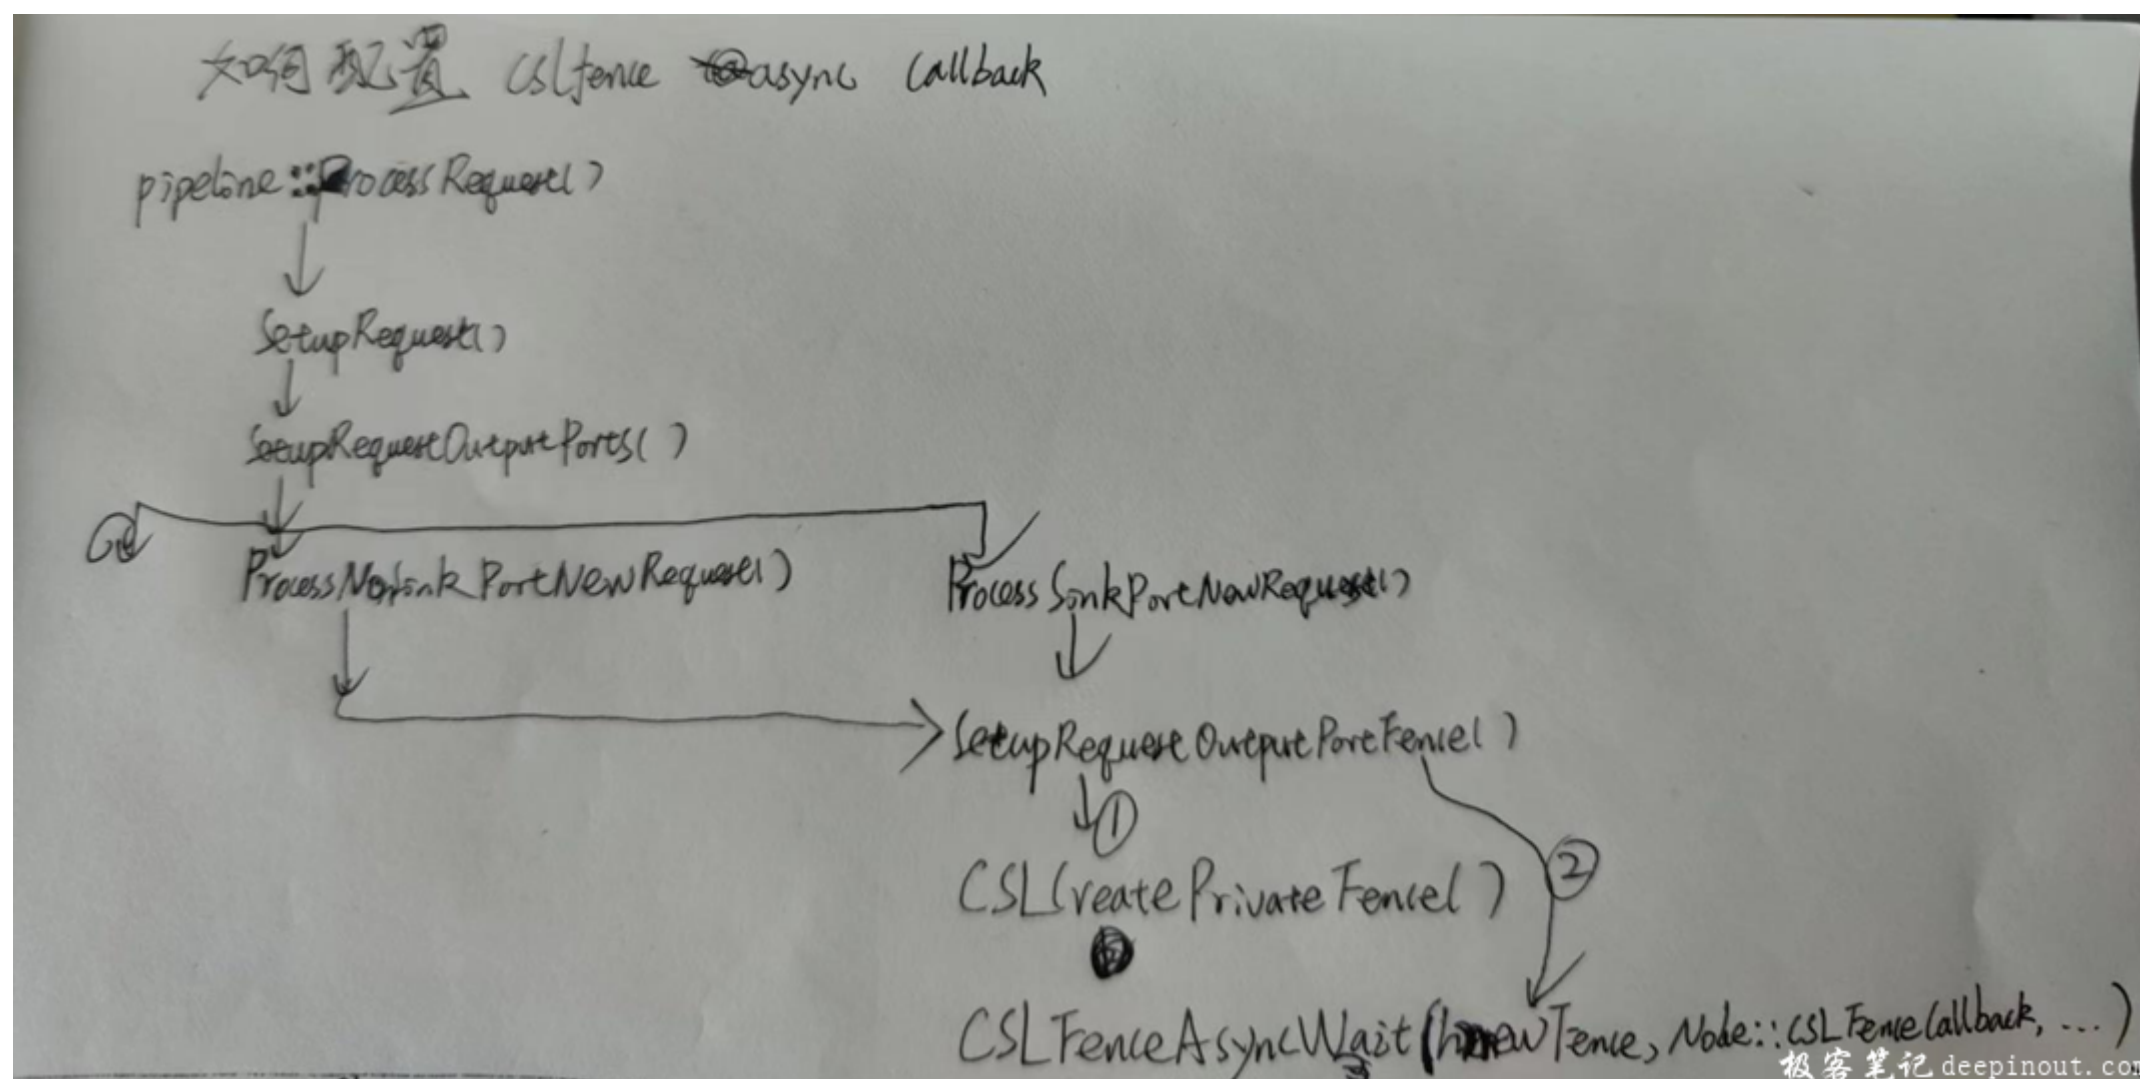 如何配置 CSLfence async Callback
pipeline::ProcessRequest()
SetupRequest()
SetupRequestOutputPorts()
ProcessNonSinkPortNewRequest() ProcessSinkPortNewRequest()
SetupRequestOutputPortFence()
①
CSLCreatePrivateFence() ②
CSLFenceAsyncWait(hnewFence, Node::CSLFenceCallback, ...)
极客笔记 deepinout.com